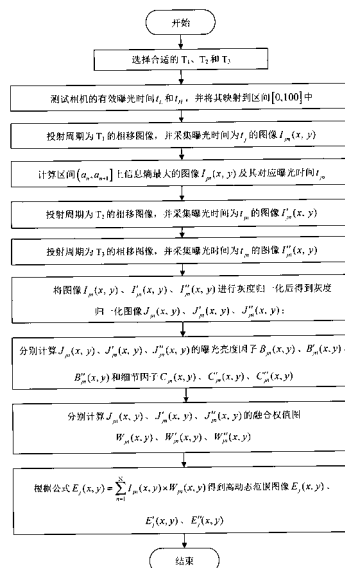 开始
选择合适的 T₁、T₂ 和 T₃
测试相机的有效曝光时间 t_L 和 t_H，并将其映射到区间[0,100]中
投射周期为 T₁ 的相移图像，并采集曝光时间为 t_j 的图像 I_jm(x, y)
计算区间(a_n, a_n+1]上信息熵最大的图像 I_jn(x, y)及其对应曝光时间 t_jn
投射周期为 T₂ 的相移图像，并采集曝光时间为 t_jn 的图像 I′_jn(x, y)
投射周期为 T₃ 的相移图像，并采集曝光时间为 t_jn 的图像 I″_jn(x, y)
将图像 I_jn(x, y)、I′_jn(x, y)、I″_jn(x, y)进行灰度归一化后得到灰度
归一化图像 J_jn(x, y)、J′_jn(x, y)、J″_jn(x, y)；
分别计算 J_jn(x, y)、J′_jn(x, y)、J″_jn(x, y)的曝光亮度因子 B_jn(x, y)、B′_jn(x, y)、
B″_jn(x, y)和细节因子 C_jn(x, y)、C′_jn(x, y)、C″_jn(x, y)
分别计算 J_jn(x, y)、J′_jn(x, y)、J″_jn(x, y)的融合权值图
W_jn(x, y)、W′_jn(x, y)、W″_jn(x, y)
根据公式 E_j(x, y) = ∑_{n=1}^{N} I_jn(x, y)×W_jn(x, y)得到高动态范围图像 E_j(x, y)、
E′_j(x, y)、E″_j(x, y)
结束